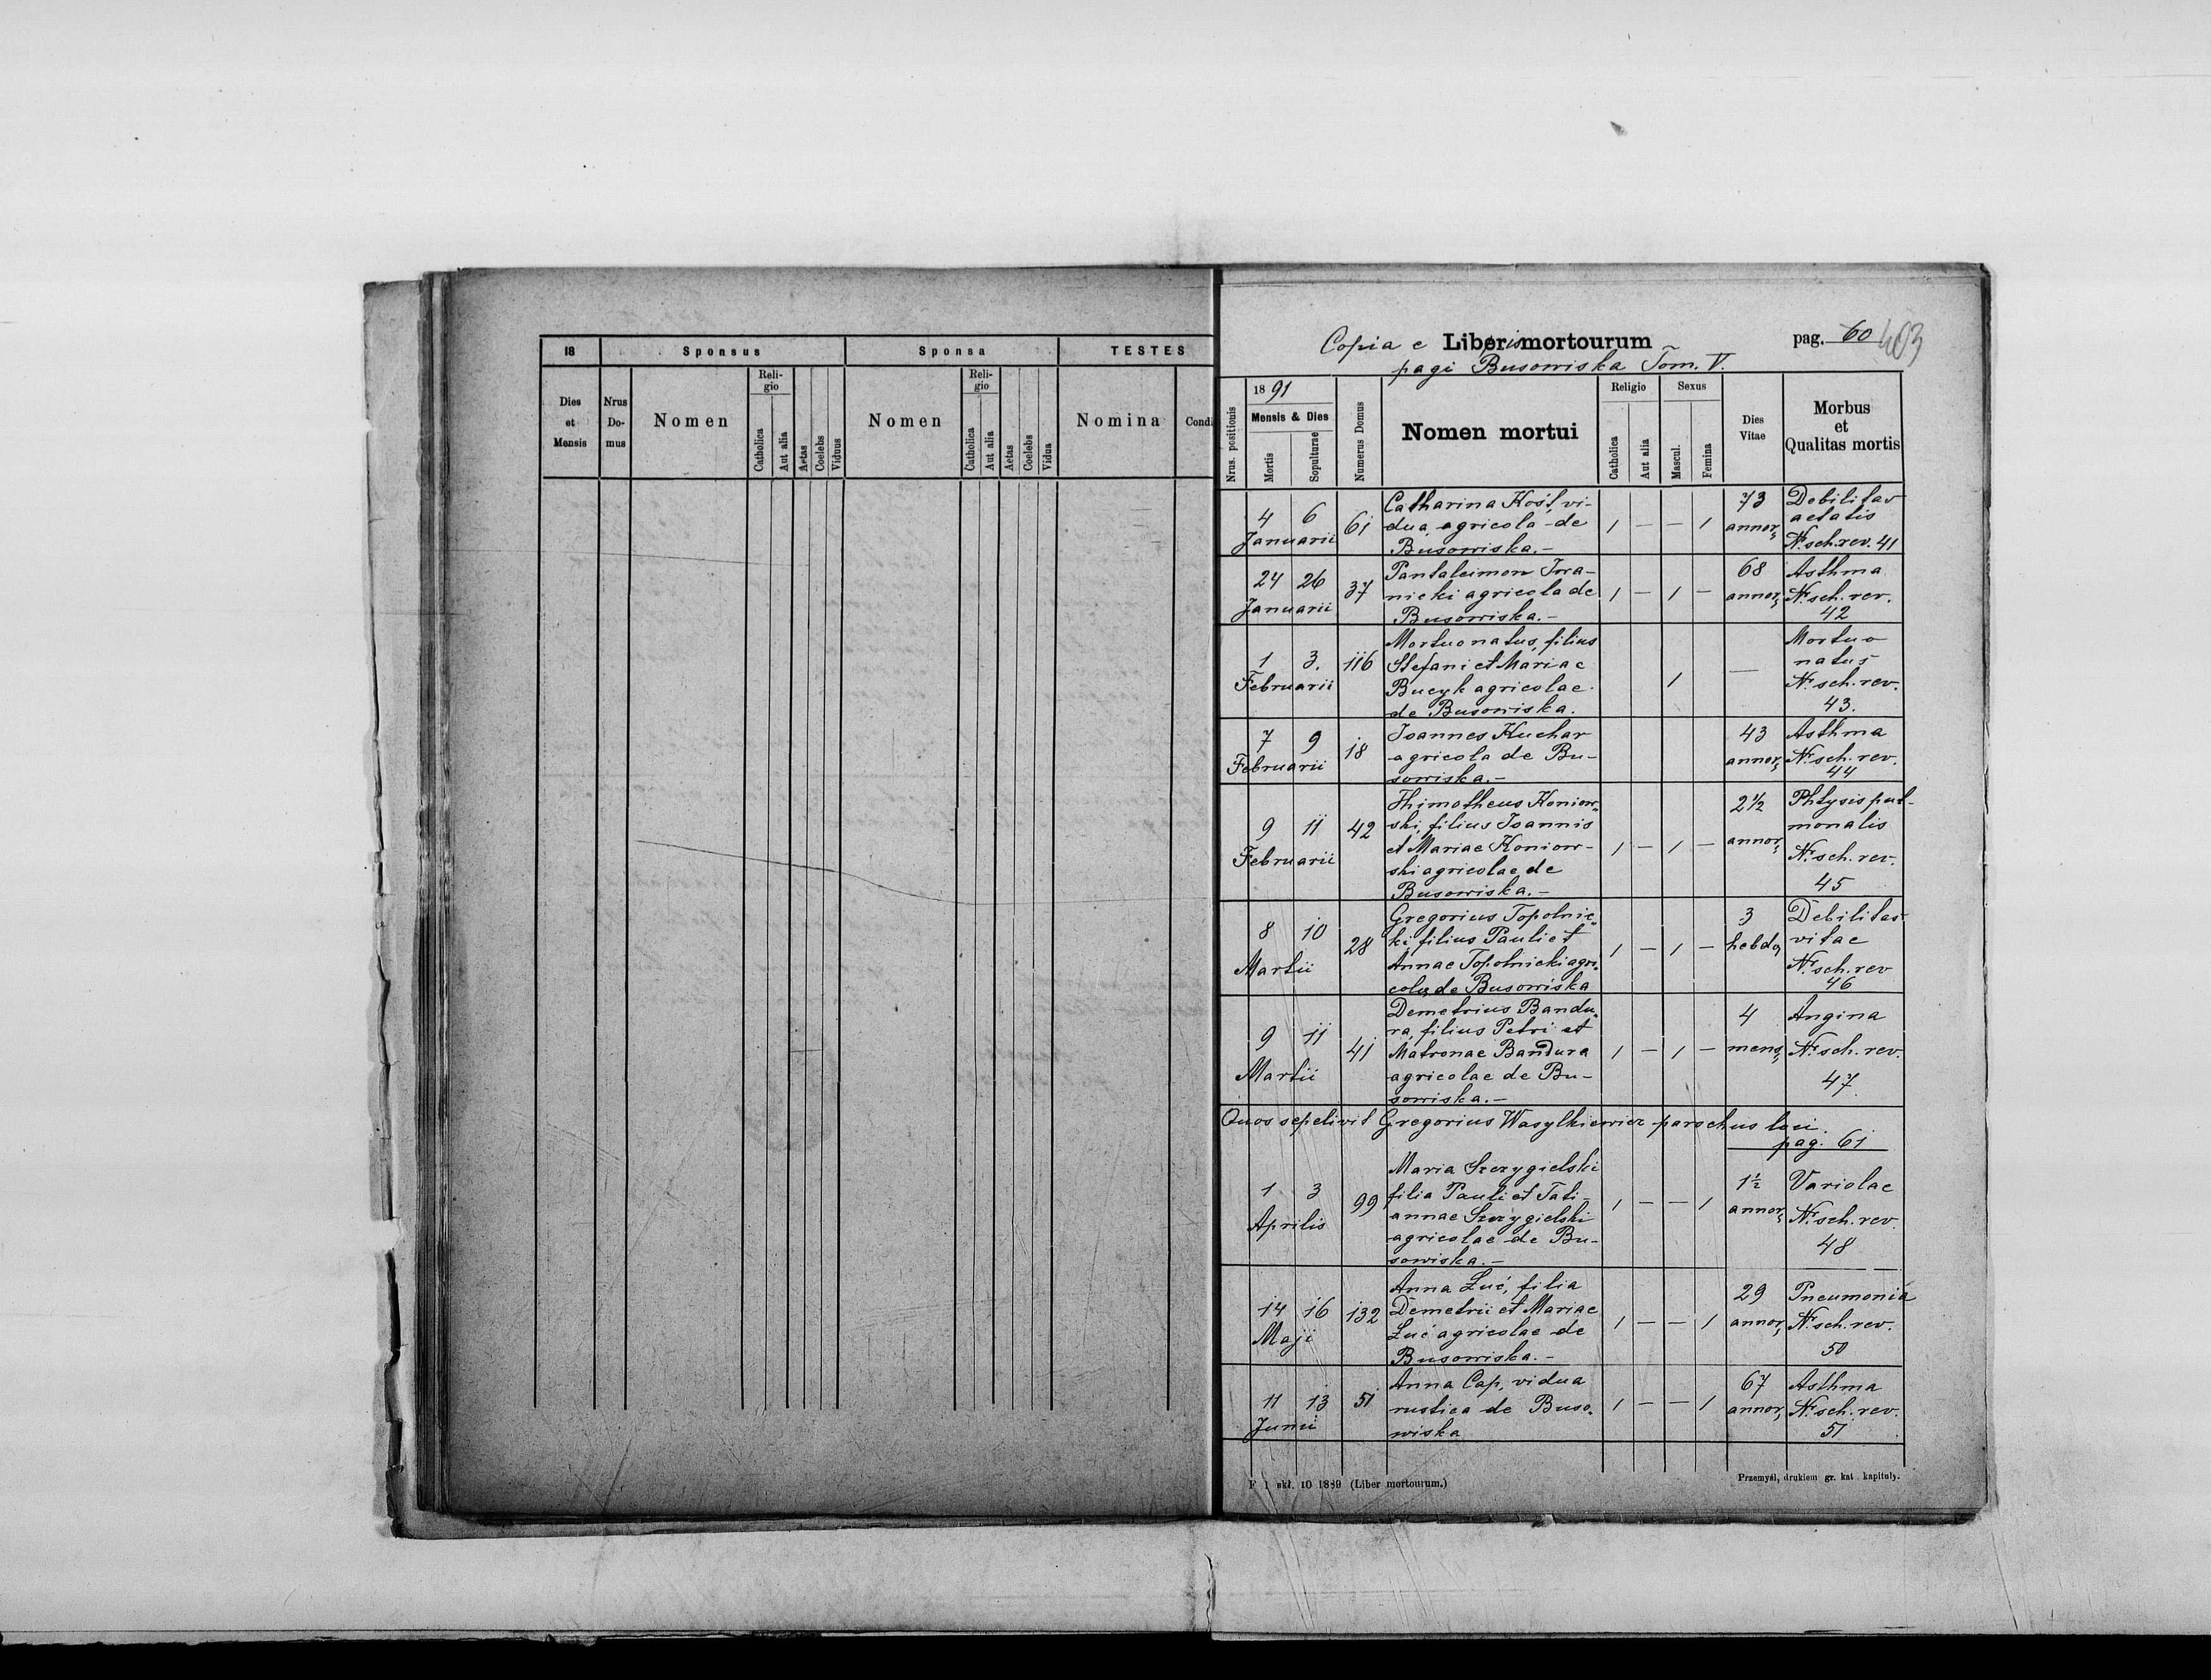 18 Sponsus Sponsa TESTES
Dies et Mensis Nrus Domus Nomen Religio Catholica Aut alia Aetas Coelebs Viduus Nomen Religio Catholica Aut alia Aetas Coelebs Vidua Nomina Condi
Copia e Libris mortourum pag. 60 403
pagi Busowiska Tom. V.
Nrus. positionis 1891 Mensis & Dies Mortis Sepulturae Numerus Domus Nomen mortui Religio Catholica Aut alia Sexus Mascul. Femina Dies Vitae Morbus et Qualitas mortis
4 6 Januarii 61
Catharina Kość, vi-
dua, agricola de
Busowiska.-
1 — — 1
73 annor,
Debilitas
aetatis
Nr. sch. rev. 41
24 26 Januarii 37
Pantaleimon Iwa-
nicki agricola de
Busowiska.-
1 — 1 —
68 annor,
Asthma
Nr. sch. rev.
42
1 3. Februarii 116
Mortuo natus, filius
Stefani et Mariae
Bucyk agricolae
de Busowiska.
1
—
Mortuo
natus
Nr. sch. rev.
43.
7 9 Februarii 18
Joannes Kuchar
agricola de Bu-
sowiska.-
43 annor,
Asthma
Nr. sch. rev.
44
9 11 Februarii 42
Thimotheus Koniow-
ski, filius Joannis
et Mariae Koniow-
ski agricolae de
Busowiska.-
1 — 1 —
2 1/2 annor,
Phtysis pul-
monalis
Nr. sch. rev.
45
8 10 Martii 28
Gregorius Topolnic-
ki, filius Pauli et
Annae Topolnicki agri-
colae de Busowiska
1 — 1 —
3 hebdo,
Debilitas
vitae
Nr. sch. rev
46
9 11 Martii 41
Demetrius Bandu-
ra, filius Petri et
Matronae Bandura
agricolae de Bu-
sowiska.-
1 — 1 —
4 mens,
Angina
Nr. sch. rev.
47
Quos sepelivit Gregorius Wasylkiewicz parochus loci.
pag. 61
1 3 Aprilis 99
Maria Szczygielski
filia Pauli et Tati-
annae Szczygielski
agricolae de Bu-
sowiska.-
1 — — 1
1 1/2 annor,
Variolae
Nr. sch. rev.
48
14 16 Maji 132
Anna Łuć, filia
Demetrii et Mariae
Łuć agricolae de
Busowiska.-
1 — — 1
29 annor,
Pneumonia
Nr. sch. rev.
50
11 13 Junii 51
Anna Cap, vidua
rustica de Buso-
wiska
1 — — 1
67 annor,
Asthma
Nr. sch. rev.
51
F 1 skł. 10 1889 (Liber mortourum.) Przemyśl, drukiem gr. kat kapituły.